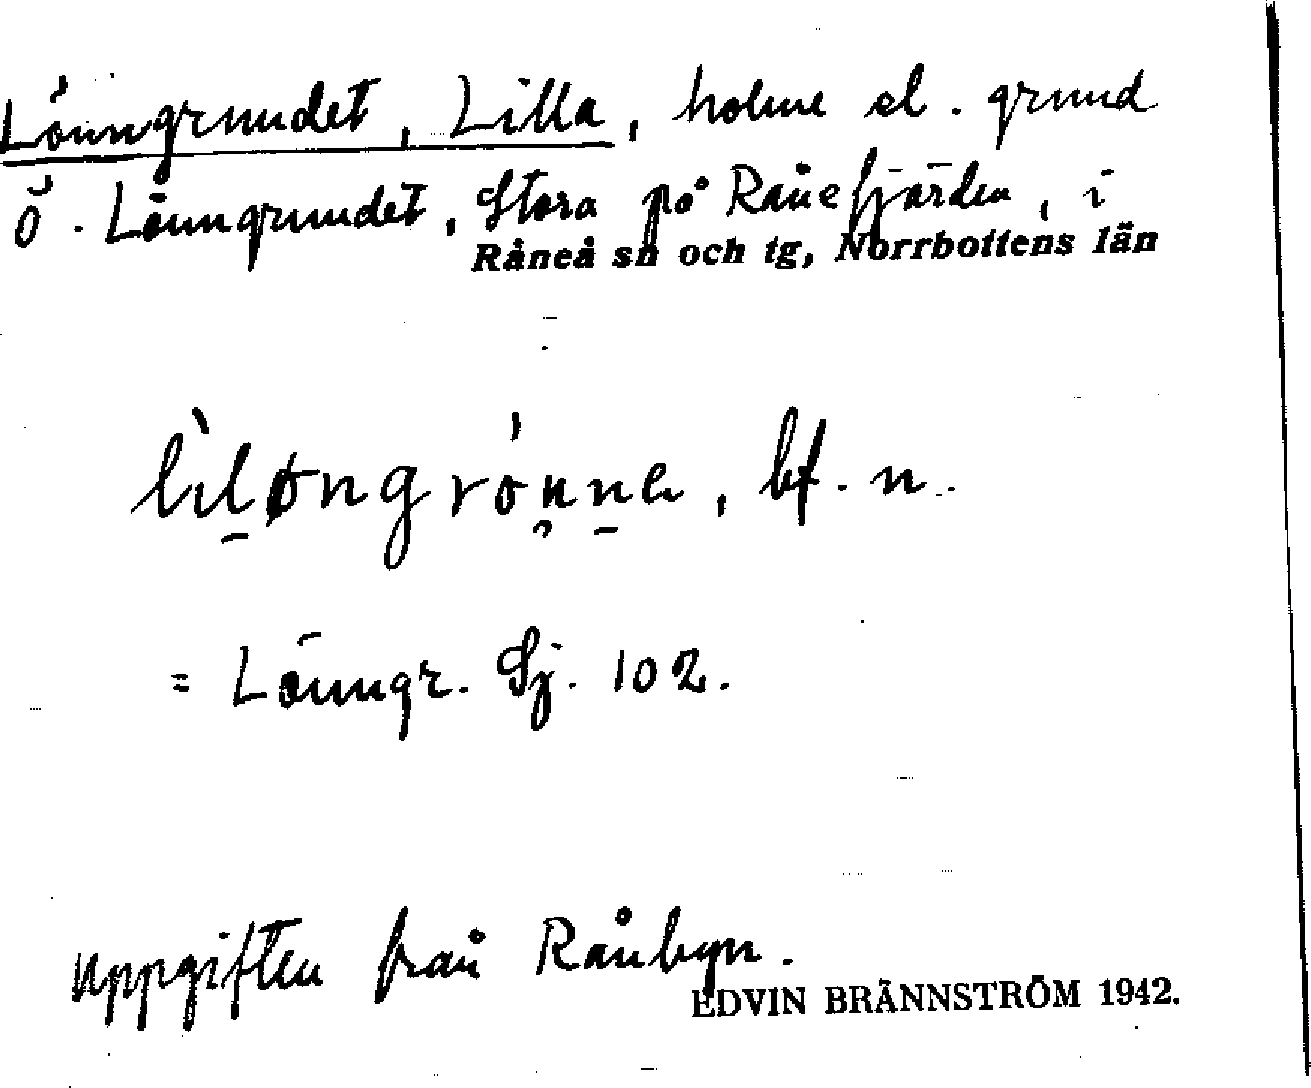 Lönngrundet, Lilla, holme el. grund
ö. Lönngrundet, Stora på Rånefjärden, i
Råneå sn och tg, Norrbottens län
bf. n.
= Lönngr. Sj. 102.
uppgiften från Rånbyn.
EDVIN BRÄNNSTRÖM 1942.